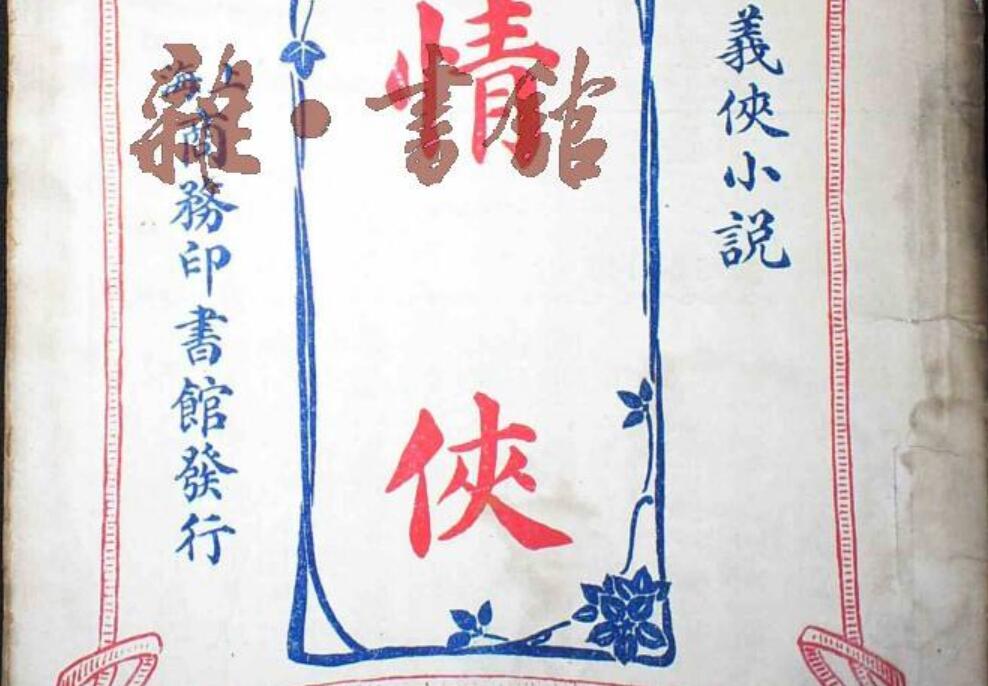 義俠小説
情俠
上海商務印書館發行
雜·書館